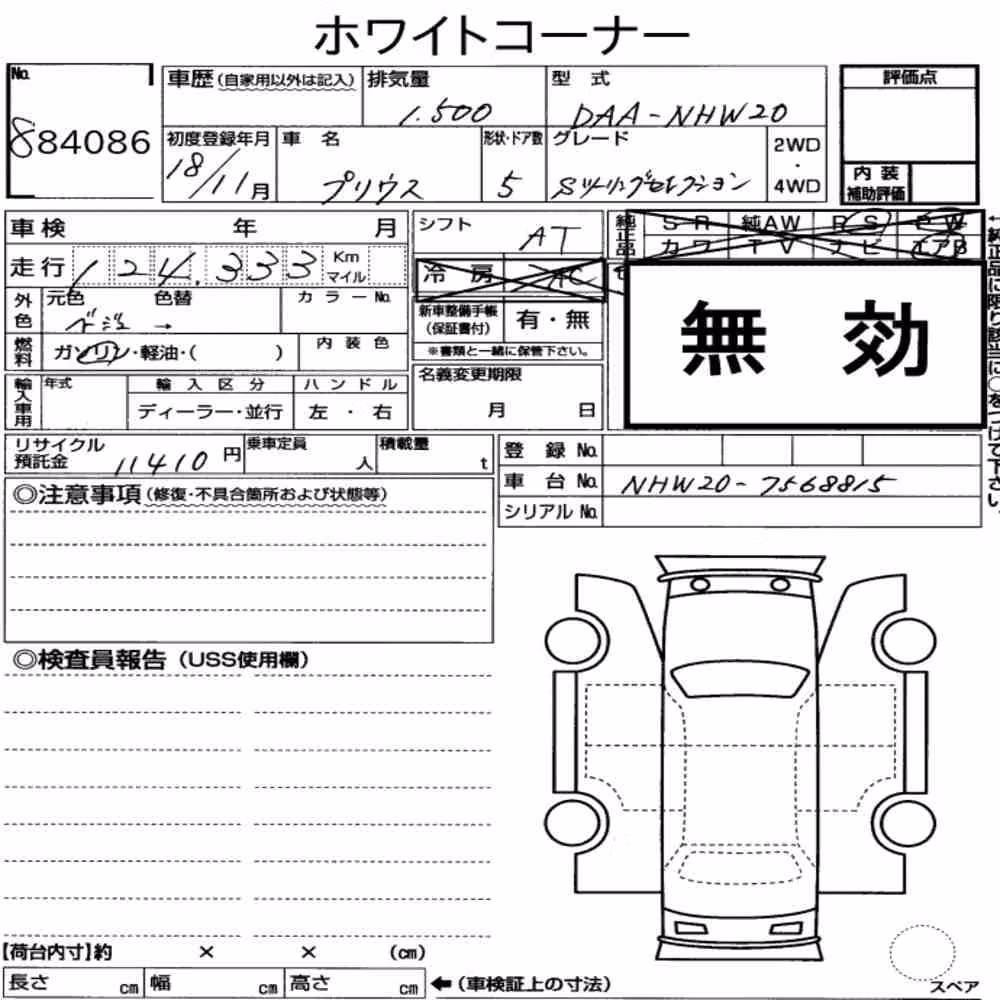 ホワイトコーナー
No.
884086
車歴(自家用以外は記入)
排気量
1.500
型 式
DAA-NHW20
評価点
初度登録年月
18/11月
車 名
プリウス
形状・ドア数
5
グレード
Sツーリングセレクション
2WD
・
4WD
内 装
補助評価
車検 年 月
シフト
AT
純正品
SR 純AW RS PW
カワ TV ナビ エアB
走行 124,333 Km
マイル
冷 房 AC
無 効
外色
元色 色替
ベージュ →
カラーNo.
新車整備手帳
(保証書付)
有・無
※書類と一緒に保管下さい。
燃料
ガソリン・軽油・( )
内 装 色
輸入車用
年式
輸 入 区 分
ディーラー・並行
ハ ン ド ル
左 ・ 右
名義変更期限
月 日
←純正品に限り該当に○をつけて下さい。
リサイクル
預託金
11410 円
乗車定員
人
積載量
t
登 録 No.
車 台 No. NHW20-7568815
シリアル No.
◎注意事項(修復・不具合箇所および状態等)
◎検査員報告(USS使用欄)
【荷台内寸】約 × × (cm)
長さ cm 幅 cm 高さ cm ←(車検証上の寸法)
スペア